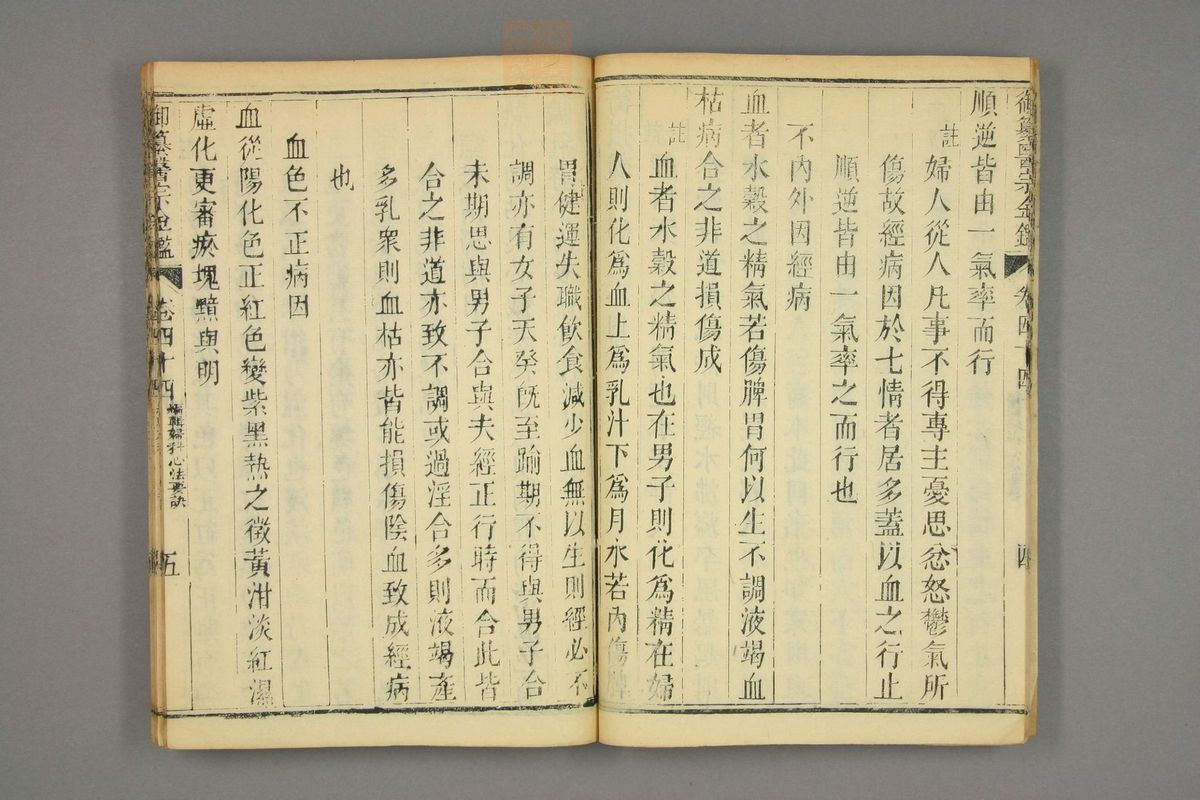 御纂醫宗金鑑 卷四十四 四
順逆皆由一氣率而行
註 婦人從人凡事不得專主憂思忿怒鬱氣所
傷故經病因於七情者居多蓋以血之行止
順逆皆由一氣率之而行也
不內外因經病
血者水穀之精氣若傷脾胃何以生不調液竭血
枯病合之非道損傷成
註 血者水穀之精氣也在男子則化爲精在婦
人則化爲血上爲乳汁下爲月水若內傷脾
胃健運失職飮食減少血無以生則經必不
調亦有女子天癸旣至踰期不得與男子合
未期思與男子合與夫經正行時而合此皆
合之非道亦致不調或過淫合多則液竭產
多乳衆則血枯亦皆能損傷陰血致成經病
也
血色不正病因
血從陽化色正紅色變紫黑熱之徵黃泔淡紅濕
虛化更審瘀塊黯與明
御纂醫宗金鑑 卷四十四 編輯婦科心法要訣 五